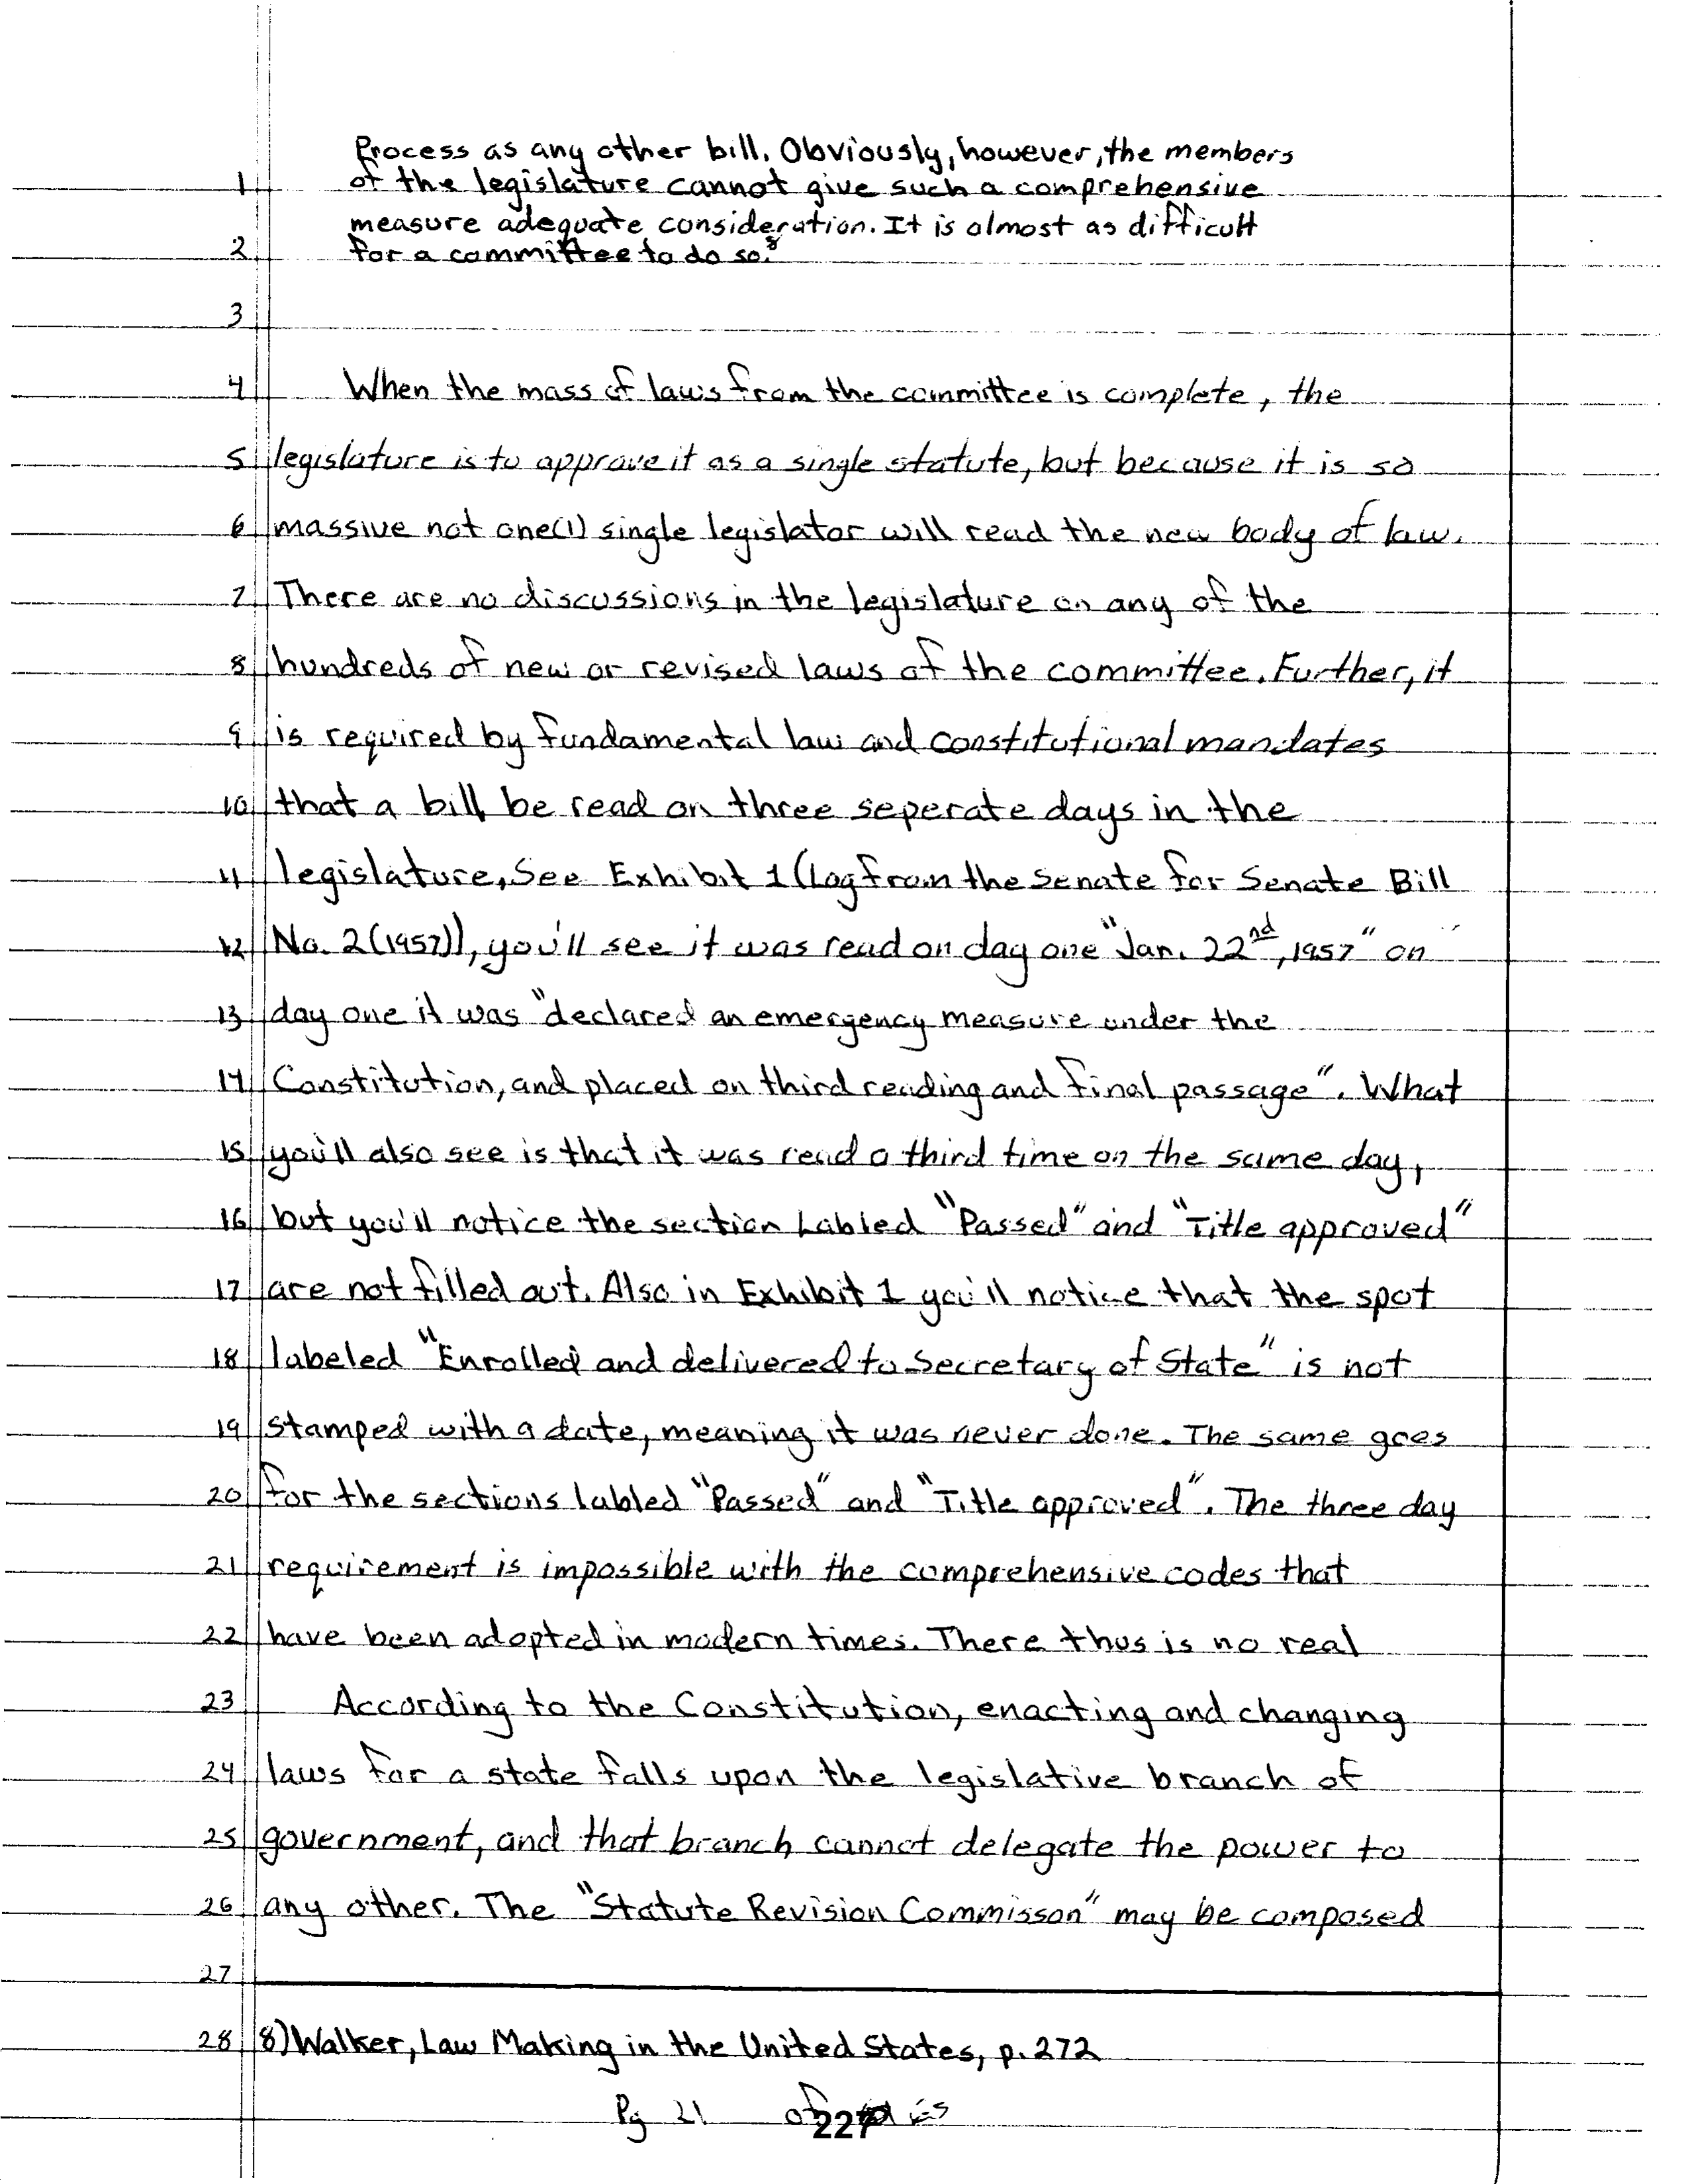 Process as any other bill. Obviously, however, the members
1 of the legislature cannot give such a comprehensive
measure adequate consideration. It is almost as difficult
2 for a committee to do so.8
3
4 When the mass of laws from the committee is complete, the
5 legislature is to approve it as a single statute, but because it is so
6 massive not one(1) single legislator will read the new body of law.
7 There are no discussions in the legislature on any of the
8 hundreds of new or revised laws of the committee. Further, it
9 is required by fundamental law and constitutional mandates
10 that a bill be read on three seperate days in the
11 legislature, See Exhibit 1 (Log from the Senate for Senate Bill
12 No. 2(1957)), you'll see it was read on day one "Jan. 22nd, 1957" on
13 day one it was "declared an emergency measure under the
14 Constitution, and placed on third reading and final passage". What
15 you'll also see is that it was read a third time on the same day,
16 but you'll notice the section Labled "Passed" and "Title approved"
17 are not filled out. Also in Exhibit 1 you'll notice that the spot
18 labeled "Enrolled and delivered to Secretary of State" is not
19 stamped with a date, meaning it was never done. The same goes
20 for the sections labled "Passed" and "Title approved". The three day
21 requirement is impossible with the comprehensive codes that
22 have been adopted in modern times. There thus is no real
23 According to the Constitution, enacting and changing
24 laws for a state falls upon the legislative branch of
25 government, and that branch cannot delegate the power to
26 any other. The "Statute Revision Commisson" may be composed
27
28 8) Walker, Law Making in the United States, p. 272
Pg 21 of
227